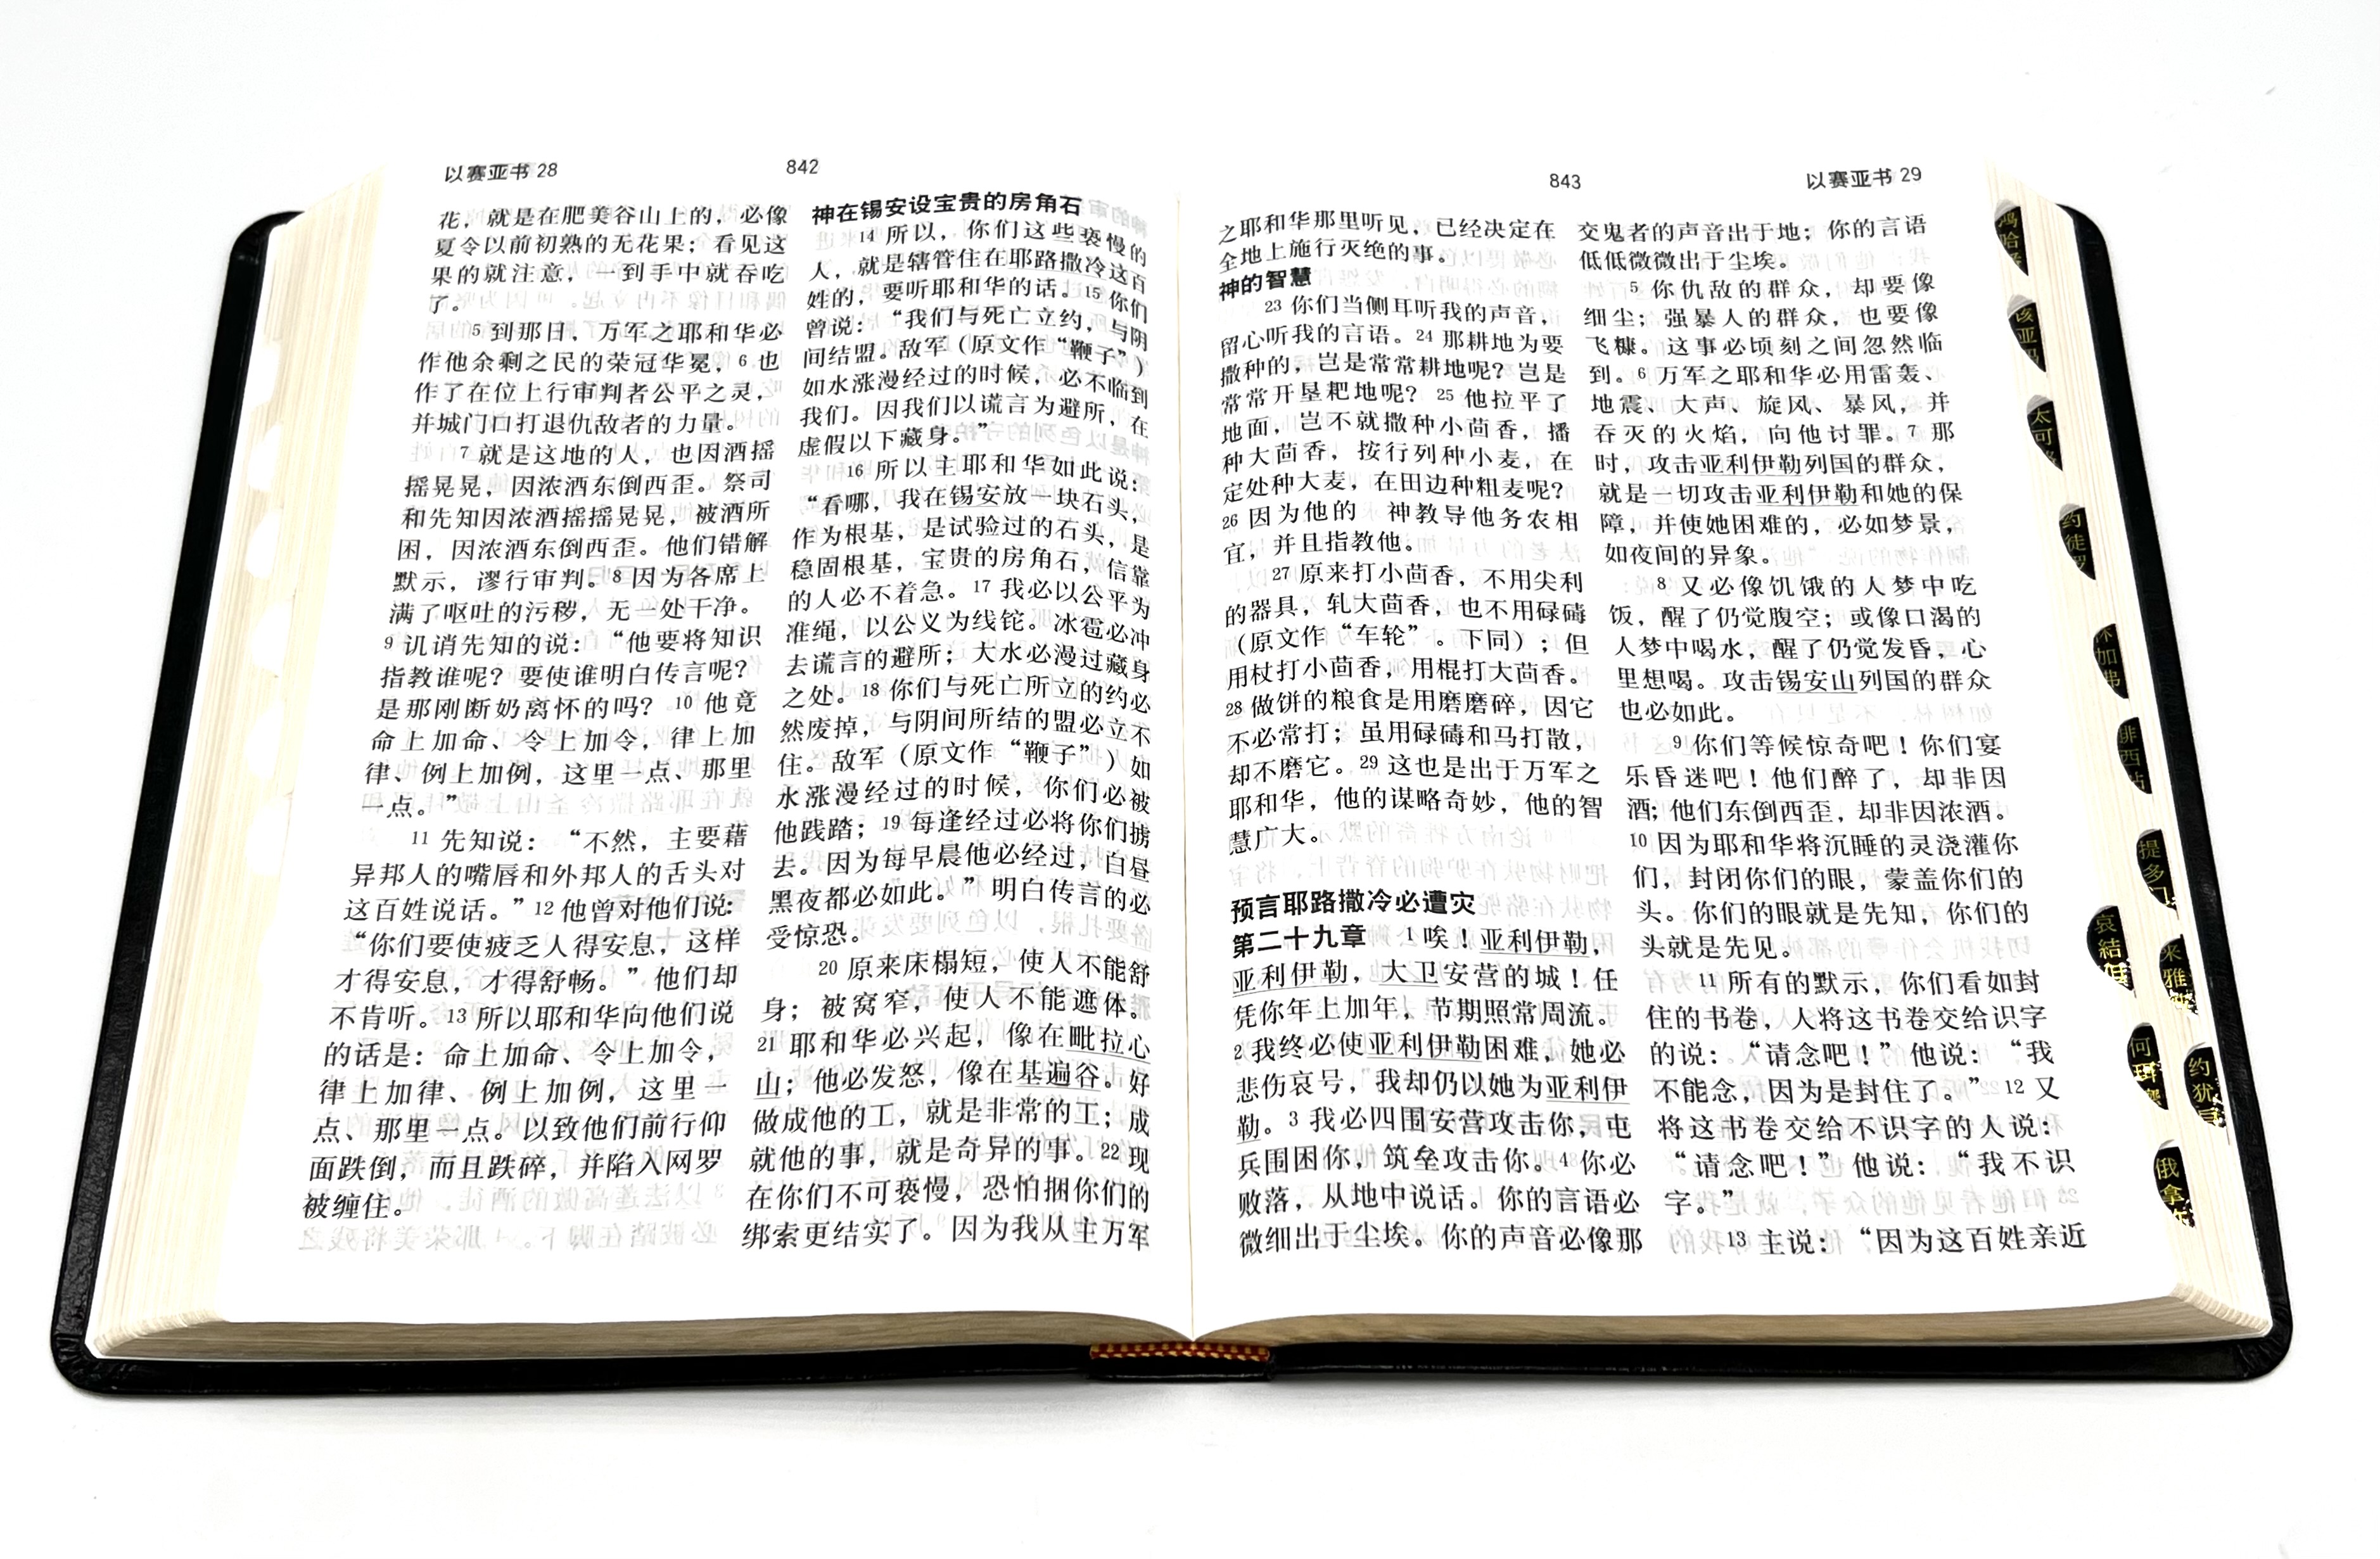 以赛亚书 28
842
花，就是在肥美谷山上的，必像
夏令以前初熟的无花果；看见这
果的就注意，一到手中就吞吃
了。
5 到那日，万军之耶和华必
作他余剩之民的荣冠华冕，6 也
作了在位上行审判者公平之灵，
并城门口打退仇敌者的力量。
7 就是这地的人，也因酒摇
摇晃晃，因浓酒东倒西歪。祭司
和先知因浓酒摇摇晃晃，被酒所
困，因浓酒东倒西歪。他们错解
默示，谬行审判。8 因为各席上
满了呕吐的污秽，无一处干净。
9 讥诮先知的说：“他要将知识
指教谁呢？要使谁明白传言呢？
是那刚断奶离怀的吗？10 他竟
命上加命、令上加令，律上加
律、例上加例，这里一点、那里
一点。”
11 先知说：“不然，主要藉
异邦人的嘴唇和外邦人的舌头对
这百姓说话。”12 他曾对他们说：
“你们要使疲乏人得安息，这样
才得安息，才得舒畅。”他们却
不肯听。13 所以耶和华向他们说
的话是：命上加命、令上加令，
律上加律、例上加例，这里一
点、那里一点。以致他们前行仰
面跌倒，而且跌碎，并陷入网罗
被缠住。
神在锡安设宝贵的房角石
14 所以，你们这些亵慢的
人，就是辖管住在耶路撒冷这百
姓的，要听耶和华的话。15 你们
曾说：“我们与死亡立约，与阴
间结盟。敌军（原文作“鞭子”）
如水涨漫经过的时候，必不临到
我们。因我们以谎言为避所，在
虚假以下藏身。”
16 所以主耶和华如此说：
“看哪，我在锡安放一块石头，
作为根基，是试验过的石头，是
稳固根基，宝贵的房角石，信靠
的人必不着急。17 我必以公平为
准绳，以公义为线铊。冰雹必冲
去谎言的避所；大水必漫过藏身
之处。18 你们与死亡所立的约必
然废掉，与阴间所结的盟必立不
住。敌军（原文作“鞭子”）如
水涨漫经过的时候，你们必被
他践踏；19 每逢经过必将你们掳
去。因为每早晨他必经过，白昼
黑夜都必如此。”明白传言的必
受惊恐。
20 原来床榻短，使人不能舒
身；被窝窄，使人不能遮体。
21 耶和华必兴起，像在毗拉心
山；他必发怒，像在基遍谷。好
做成他的工，就是非常的工；成
就他的事，就是奇异的事。22 现
在你们不可亵慢，恐怕捆你们的
绑索更结实了。因为我从主万军
843
以赛亚书 29
之耶和华那里听见，已经决定在
全地上施行灭绝的事。
神的智慧
23 你们当侧耳听我的声音，
留心听我的言语。24 那耕地为要
撒种的，岂是常常耕地呢？岂是
常常开垦耙地呢？25 他拉平了
地面，岂不就撒种小茴香，播
种大茴香，按行列种小麦，在
定处种大麦，在田边种粗麦呢？
26 因为他的　神教导他务农相
宜，并且指教他。
27 原来打小茴香，不用尖利
的器具，轧大茴香，也不用碌碡
（原文作“车轮”。下同）；但
用杖打小茴香，用棍打大茴香。
28 做饼的粮食是用磨磨碎，因它
不必常打；虽用碌碡和马打散，
却不磨它。29 这也是出于万军之
耶和华，他的谋略奇妙，他的智
慧广大。
预言耶路撒冷必遭灾
第二十九章 1 唉！亚利伊勒，
亚利伊勒，大卫安营的城！任
凭你年上加年，节期照常周流。
2 我终必使亚利伊勒困难，她必
悲伤哀号，我却仍以她为亚利伊
勒。3 我必四围安营攻击你，屯
兵围困你，筑垒攻击你。4 你必
败落，从地中说话。你的言语必
微细出于尘埃。你的声音必像那
交鬼者的声音出于地；你的言语
低低微微出于尘埃。
5 你仇敌的群众，却要像
细尘；强暴人的群众，也要像
飞糠。这事必顷刻之间忽然临
到。6 万军之耶和华必用雷轰、
地震、大声、旋风、暴风，并
吞灭的火焰，向他讨罪。7 那
时，攻击亚利伊勒列国的群众，
就是一切攻击亚利伊勒和她的保
障，并使她困难的，必如梦景，
如夜间的异象。
8 又必像饥饿的人梦中吃
饭，醒了仍觉腹空；或像口渴的
人梦中喝水，醒了仍觉发昏，心
里想喝。攻击锡安山列国的群众
也必如此。
9 你们等候惊奇吧！你们宴
乐昏迷吧！他们醉了，却非因
酒；他们东倒西歪，却非因浓酒。
10 因为耶和华将沉睡的灵浇灌你
们，封闭你们的眼，蒙盖你们的
头。你们的眼就是先知，你们的
头就是先见。
11 所有的默示，你们看如封
住的书卷，人将这书卷交给识字
的说：“请念吧！”他说：“我
不能念，因为是封住了。”12 又
将这书卷交给不识字的人说：
“请念吧！”他说：“我不识
字。”
13 主说：“因为这百姓亲近
该
亚
太
可
约
徒
加
弗
腓
西
提
多
哀
結
来
雅
何
约
犹
俄
拿